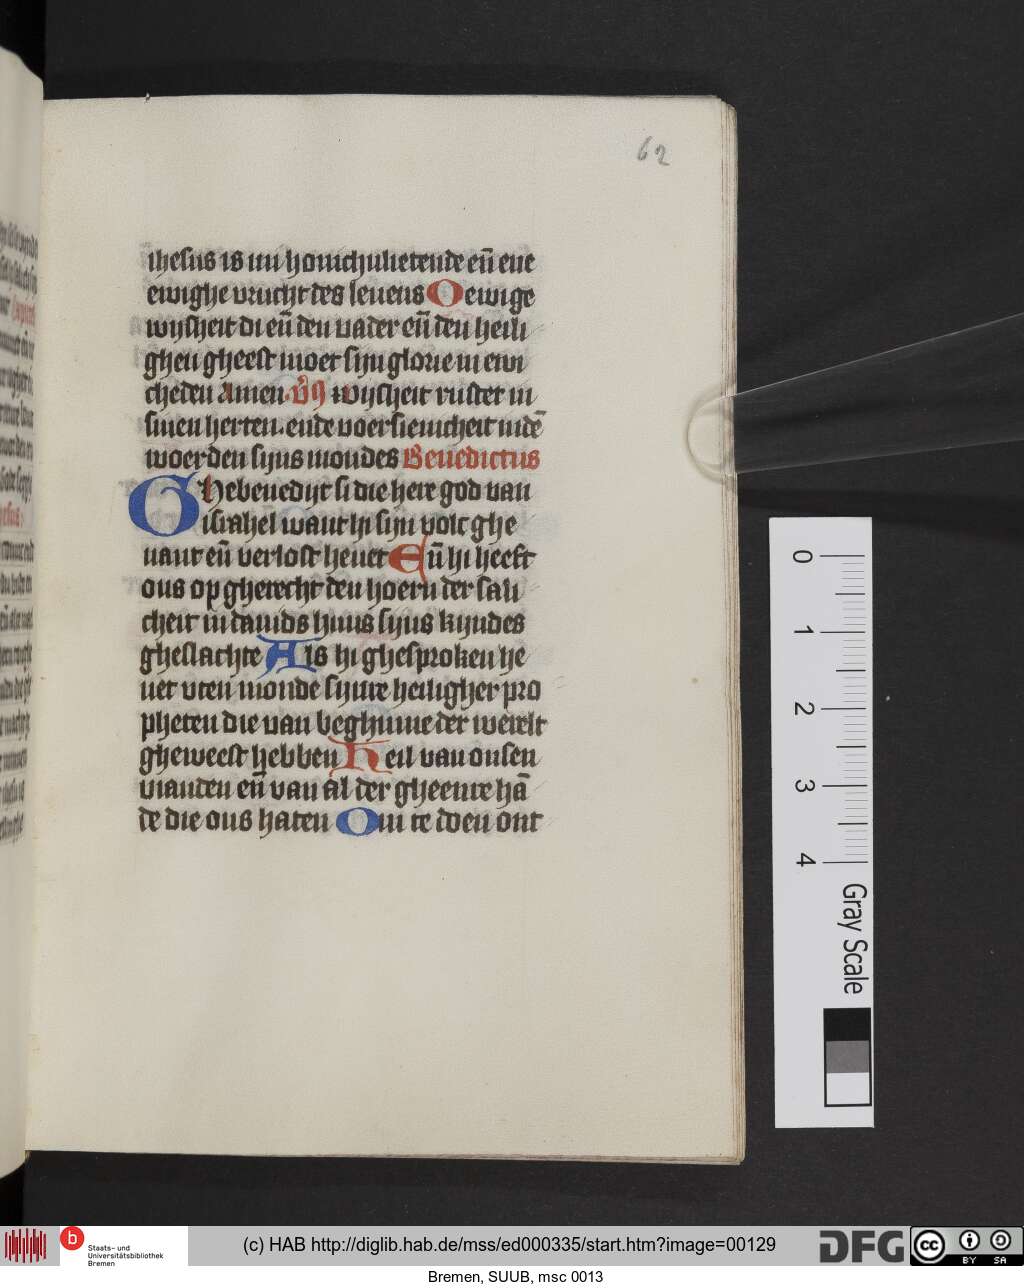 62
ihesus is mi honichulietende eñ ene
ewighe vrucht des leuens O ewige
wijsheit di eñ den vader eñ den heili
ghen gheest moet sijn glorie in ewi
cheden Amen. wijsheit rustet in
sinen herten. ende voersienicheit indē
woerden sijns mondes Benedictus
Ghebenedijt si die here god van
israhel want hi sijn volc ghe
uant eñ verlost heuet Eñ hi heeft
ons op gherecht den hoern der sali
cheit in dauids huus sijns kijndes
gheslachte Als hi ghesproken he
uet vten monde sijnre heiligher pro
pheten die van beghinne der werelt
gheweest hebben Heil van onsen
vianden eñ van al der gheenre hā
de die ons haten Om te doen ont
0
1
2
3
4
Gray Scale
b
Staats- und
Universitätsbibliothek
Bremen
(c) HAB http://diglib.hab.de/mss/ed000335/start.htm?image=00129
DFG
cc
BY
SA
Bremen, SUUB, msc 0013